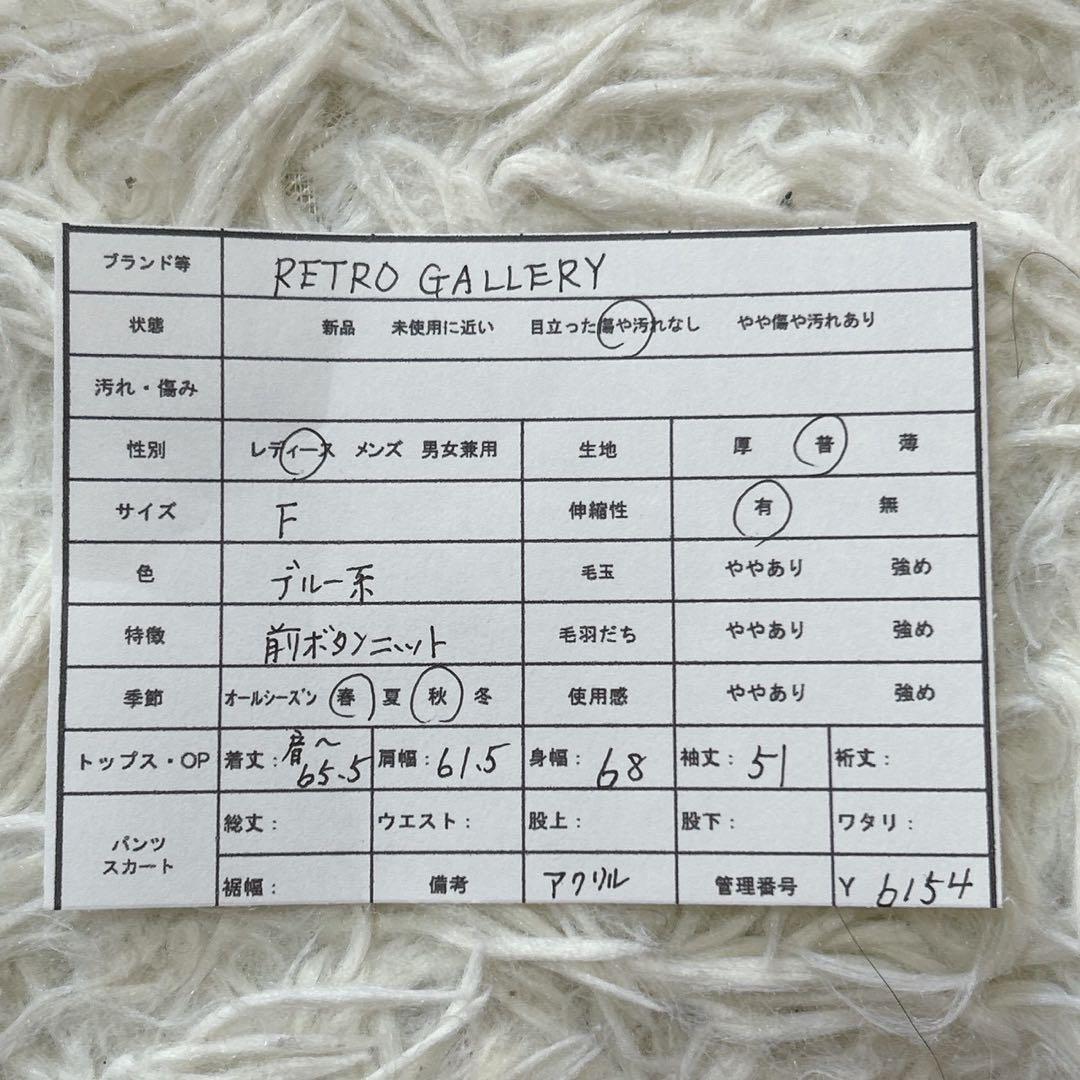 ブランド等 RETRO GALLERY
状態 新品 未使用に近い 目立った傷や汚れなし やや傷や汚れあり
汚れ・傷み
性別 レディース メンズ 男女兼用 生地 厚 普 薄
サイズ F 伸縮性 有 無
色 ブルー系 毛玉 ややあり 強め
特徴 前ボタンニット 毛羽だち ややあり 強め
季節 オールシーズン 春 夏 秋 冬 使用感 ややあり 強め
トップス・OP 着丈: 65.5 肩幅: 61.5 身幅: 68 袖丈: 51 裄丈:
パンツ スカート 総丈: ウエスト: 股上: 股下: ワタリ:
裾幅: 備考 アクリル 管理番号 Y 6154